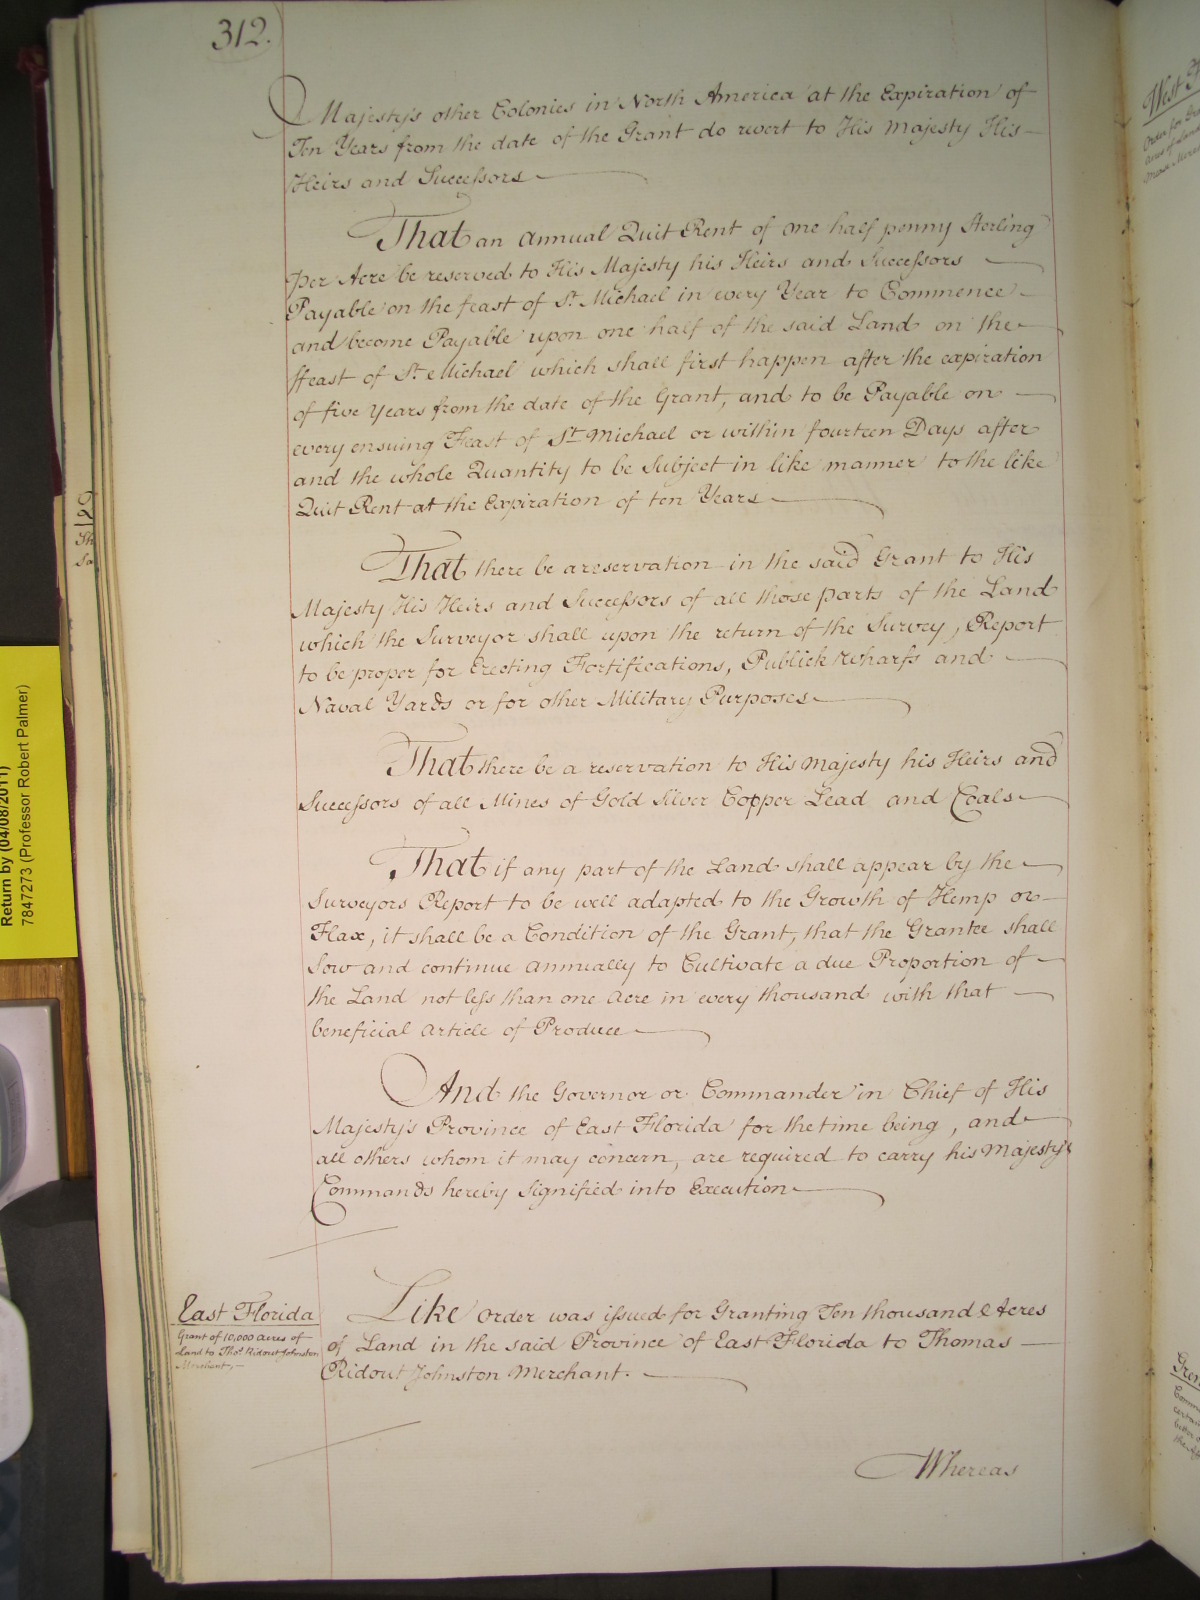 312.
Majesty's other Colonies in North America at the Expiration of
Ten Years from the date of the Grant do revert to His Majesty His
Heirs and Successors
That an annual Quit Rent of one half penny Sterling
Per Acre be reserved to His Majesty his Heirs and Successors
Payable on the feast of St. Michael in every Year to Commence
and become Payable upon one half of the said Land on the
ffeast of St. Michael which shall first happen after the expiration
of five Years from the date of the Grant, and to be Payable on
every ensuing Feast of St. Michael or within fourteen Days after
and the whole Quantity to be Subject in like manner to the like
Quit Rent at the Expiration of ten Years
That there be a reservation in the said Grant to His
Majesty His Heirs and Successors of all those parts of the Land
which the Surveyor shall upon the return of the Survey, Report
to be proper for Erecting Fortifications, Publick Wharfs and
Naval Yards or for other Military Purposes
That there be a reservation to His Majesty his Heirs and
Successors of all Mines of Gold Silver Copper Lead and Coals
That if any part of the Land shall appear by the
Surveyors Report to be well adapted to the Growth of Hemp or
Flax, it shall be a Condition of the Grant, that the Grantee shall
Sow and continue annually to Cultivate a due Proportion of
the Land not less than one Acre in every thousand with that
beneficial Article of Produce
And the Governor or Commander in Chief of His
Majesty's Province of East Florida for the time being, and
all others whom it may concern, are required to carry his Majesty's
Commands hereby Signified into Execution
East Florida
Grant of 10,000 acres of
Land to Thos. Ridout Johnston
Merchant,
Like Order was issued for Granting Ten thousand Acres
of Land in the said Province of East Florida to Thomas
Ridout Johnston Merchant.
Whereas
Return by (04/08/2011)
7847273 (Professor Robert Palmer)
129
West